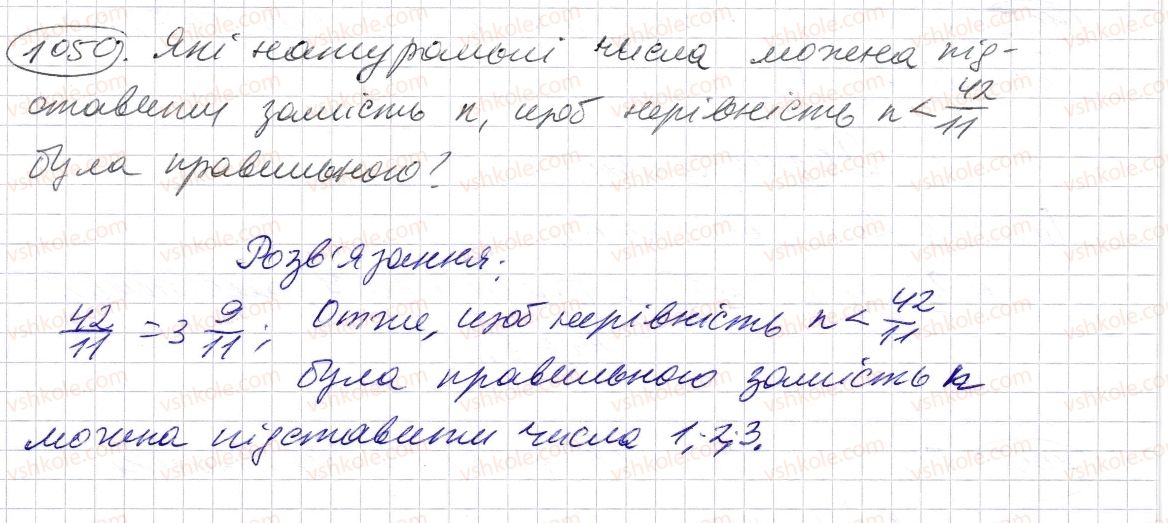 1059. Які натуральні числа можна під-
ставити замість n, щоб нерівність n < 42/11
була правильною?
Розв'язання:
42/11 = 3 9/11; Отже, щоб нерівність n < 42/11
була правильною замість n
можна підставити числа 1; 2; 3.